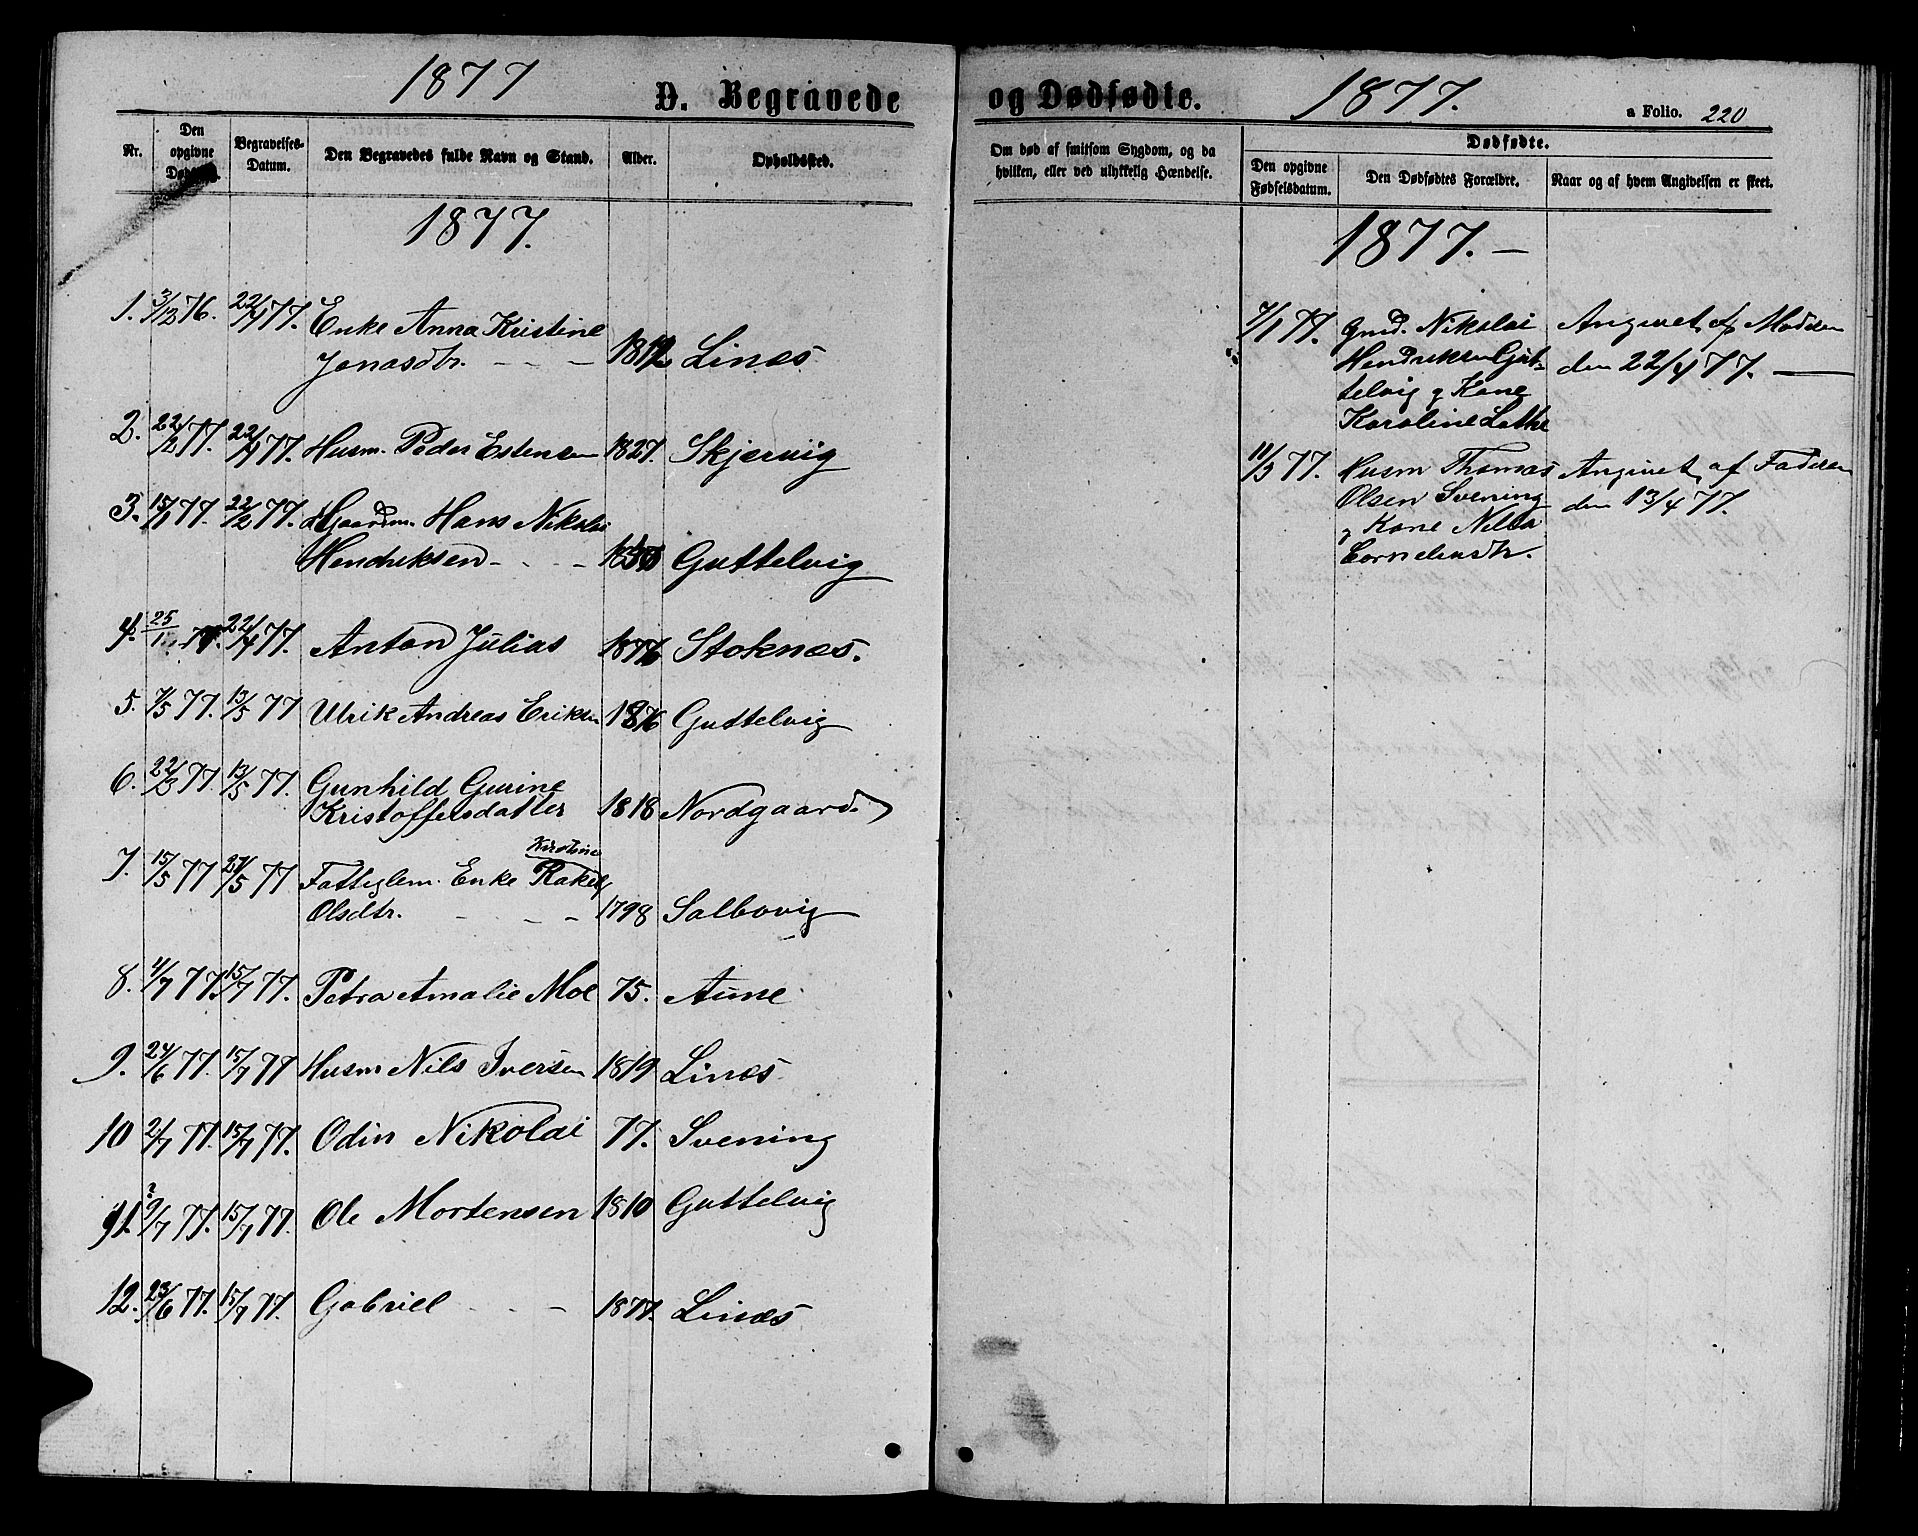 1877
D. Begravede
Nr.
Den opgivne
Begravelses-Datum.
Den Begravedes fulde Navn og Stand.
Alder.
Opholdssted.
1877.
1. 3/12 76. 22/4 77. Enke Anna Kristine
Jonasdtr. - - - 1812 Linæs
2. 22/2 77. 22/4 77. Husm. Peder Estensen 1827. Skjervig
3. 15/1 77. 22/2 77. Gaardm. Hans Nikolai
Hendriksen - - - Guttelvig
4. 25/1 77. 22/4 77. Anton Julius 1876 Stoknæs.
5. 7/5 77. 13/5 77 Ulrik Andreas Eriksen 1876 Guttelvig
6. 22/3 77. 13/5 77. Gunhild Gurine
Kristoffersdatter 1818 Nordgaard
Kirstine
7. 15/5 77 27/5 77 Fattiglem. Enke Rakel
Olsdtr. - - - 1798 Salbovig
8. 4/7 77. 15/7 77. Petra Amalie Moe 75. Aune
9. 24/6 77. 15/7 77 Husm Nils Iversen 1819 Linæs
10 2/7 77. 15/7 77. Odin Nikolai 77. Svening
11. 9/7 77. 15/7 77. Ole Mortensen 1810 Guttelvig
12. 23/6 77. 15/7 77. Gabriel - - - 1877. Linæs
og Dødfødte.
1877.
a Folio. 220
Om død af smitsom Sygdom, og da
hvilken, eller ved ulykkelig Hændelse.
Dødfødte.
Den opgivne
Fødselsdatum.
Den Dødfødtes Forældre.
Naar og af hvem Angivelsen er skeet.
1877. -
7/1 77. Gmd. Nikolai Angivet af Moderen
Hendriksen Gut- den 22/4 77.
telvig og Kone
Karoline Lothe
11/3 77. Husm Thomas Angivet af Faderen
Olsen Svening den 13/4 77.
og Kone
Corneliusdtr.